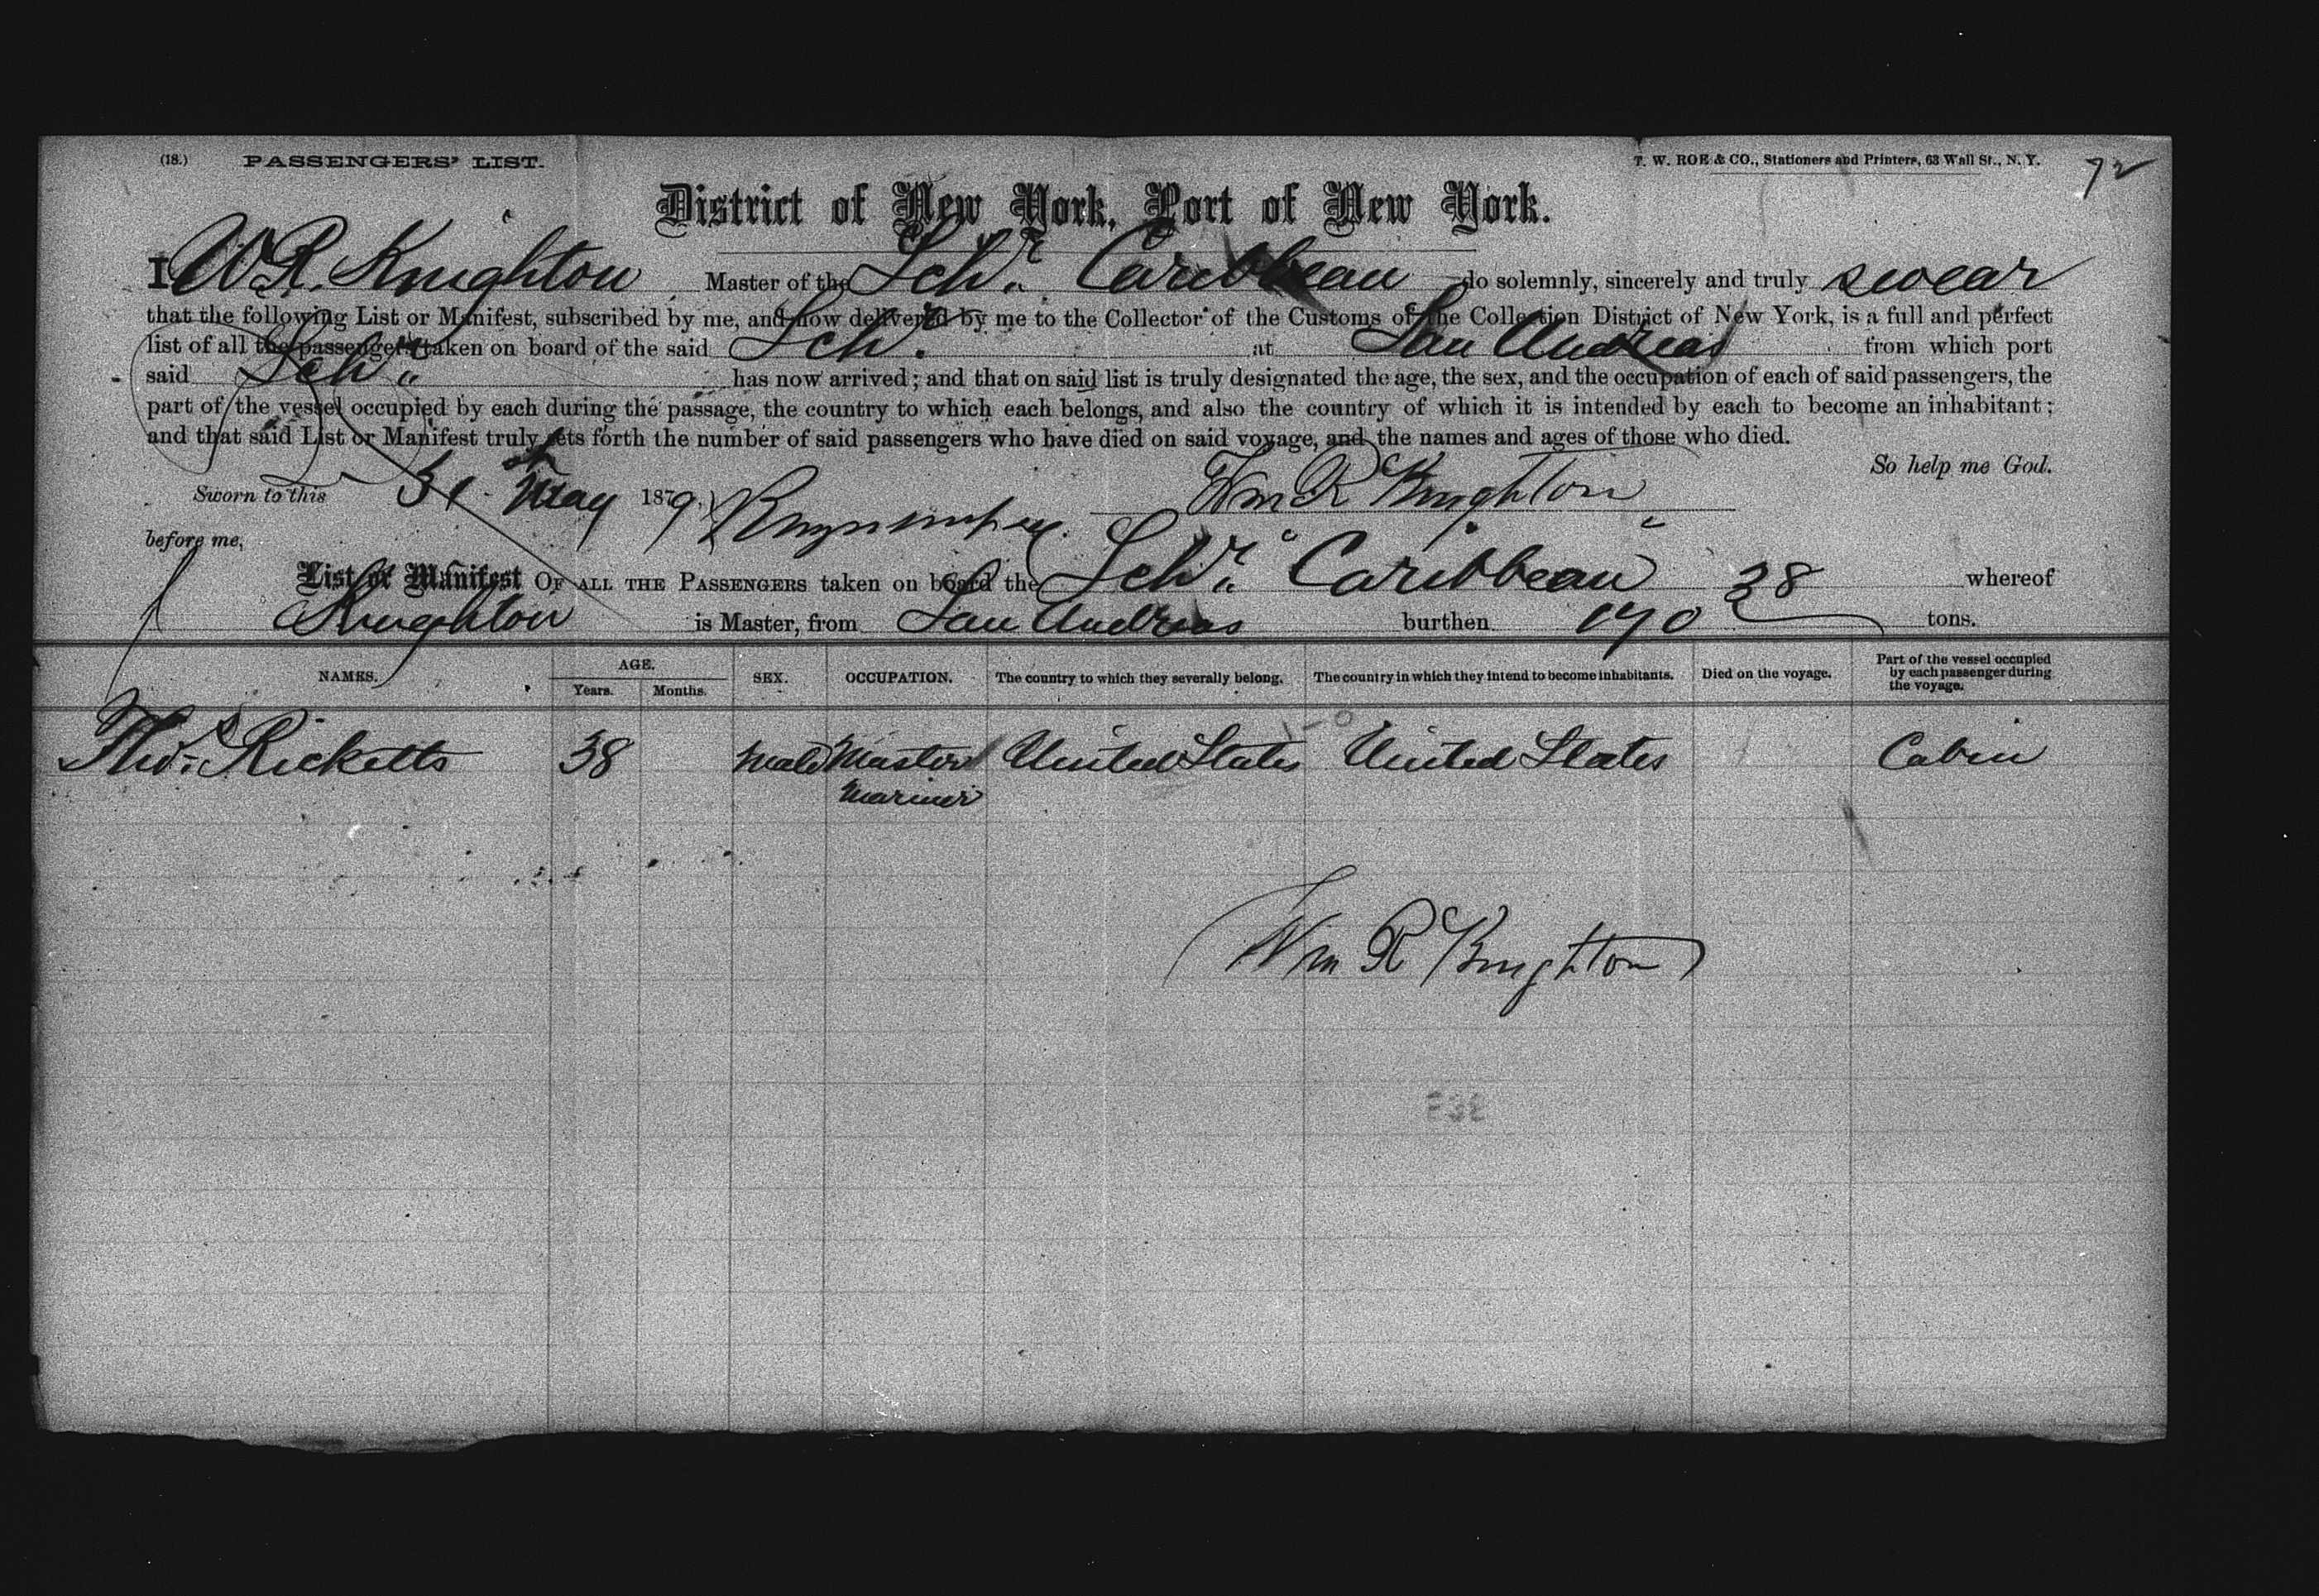 (18.) PASSENGERS' LIST. T. W. ROE & CO., Stationers and Printers, 63 Wall St., N. Y. 72
District of New York, Port of New York.
I W R. Knighton Master of the Schr. Caribbean do solemnly, sincerely and truly swear
that the following List or Manifest, subscribed by me, and now delivered by me to the Collector of the Customs of the Collection District of New York, is a full and perfect
list of all the passengers taken on board of the said Schr. at San Andreas from which port
said Schr. has now arrived; and that on said list is truly designated the age, the sex, and the occupation of each of said passengers, the
part of the vessel occupied by each during the passage, the country to which each belongs, and also the country of which it is intended by each to become an inhabitant;
and that said List or Manifest truly sets forth the number of said passengers who have died on said voyage, and the names and ages of those who died.
So help me God.
Sworn to this 31 May 1879. Wm R Knighton
before me,
List or Manifest OF ALL THE PASSENGERS taken on board the Schr. "Caribbean" whereof
Knighton is Master, from San Andreas burthen 190 38 tons.
NAMES. AGE. Years. Months. SEX. OCCUPATION. The country to which they severally belong. The country in which they intend to become inhabitants. Died on the voyage. Part of the vessel occupied by each passenger during the voyage.
Thos. Ricketts 38 Male Master United States United States Cabin
Mariner
Wm R Knighton